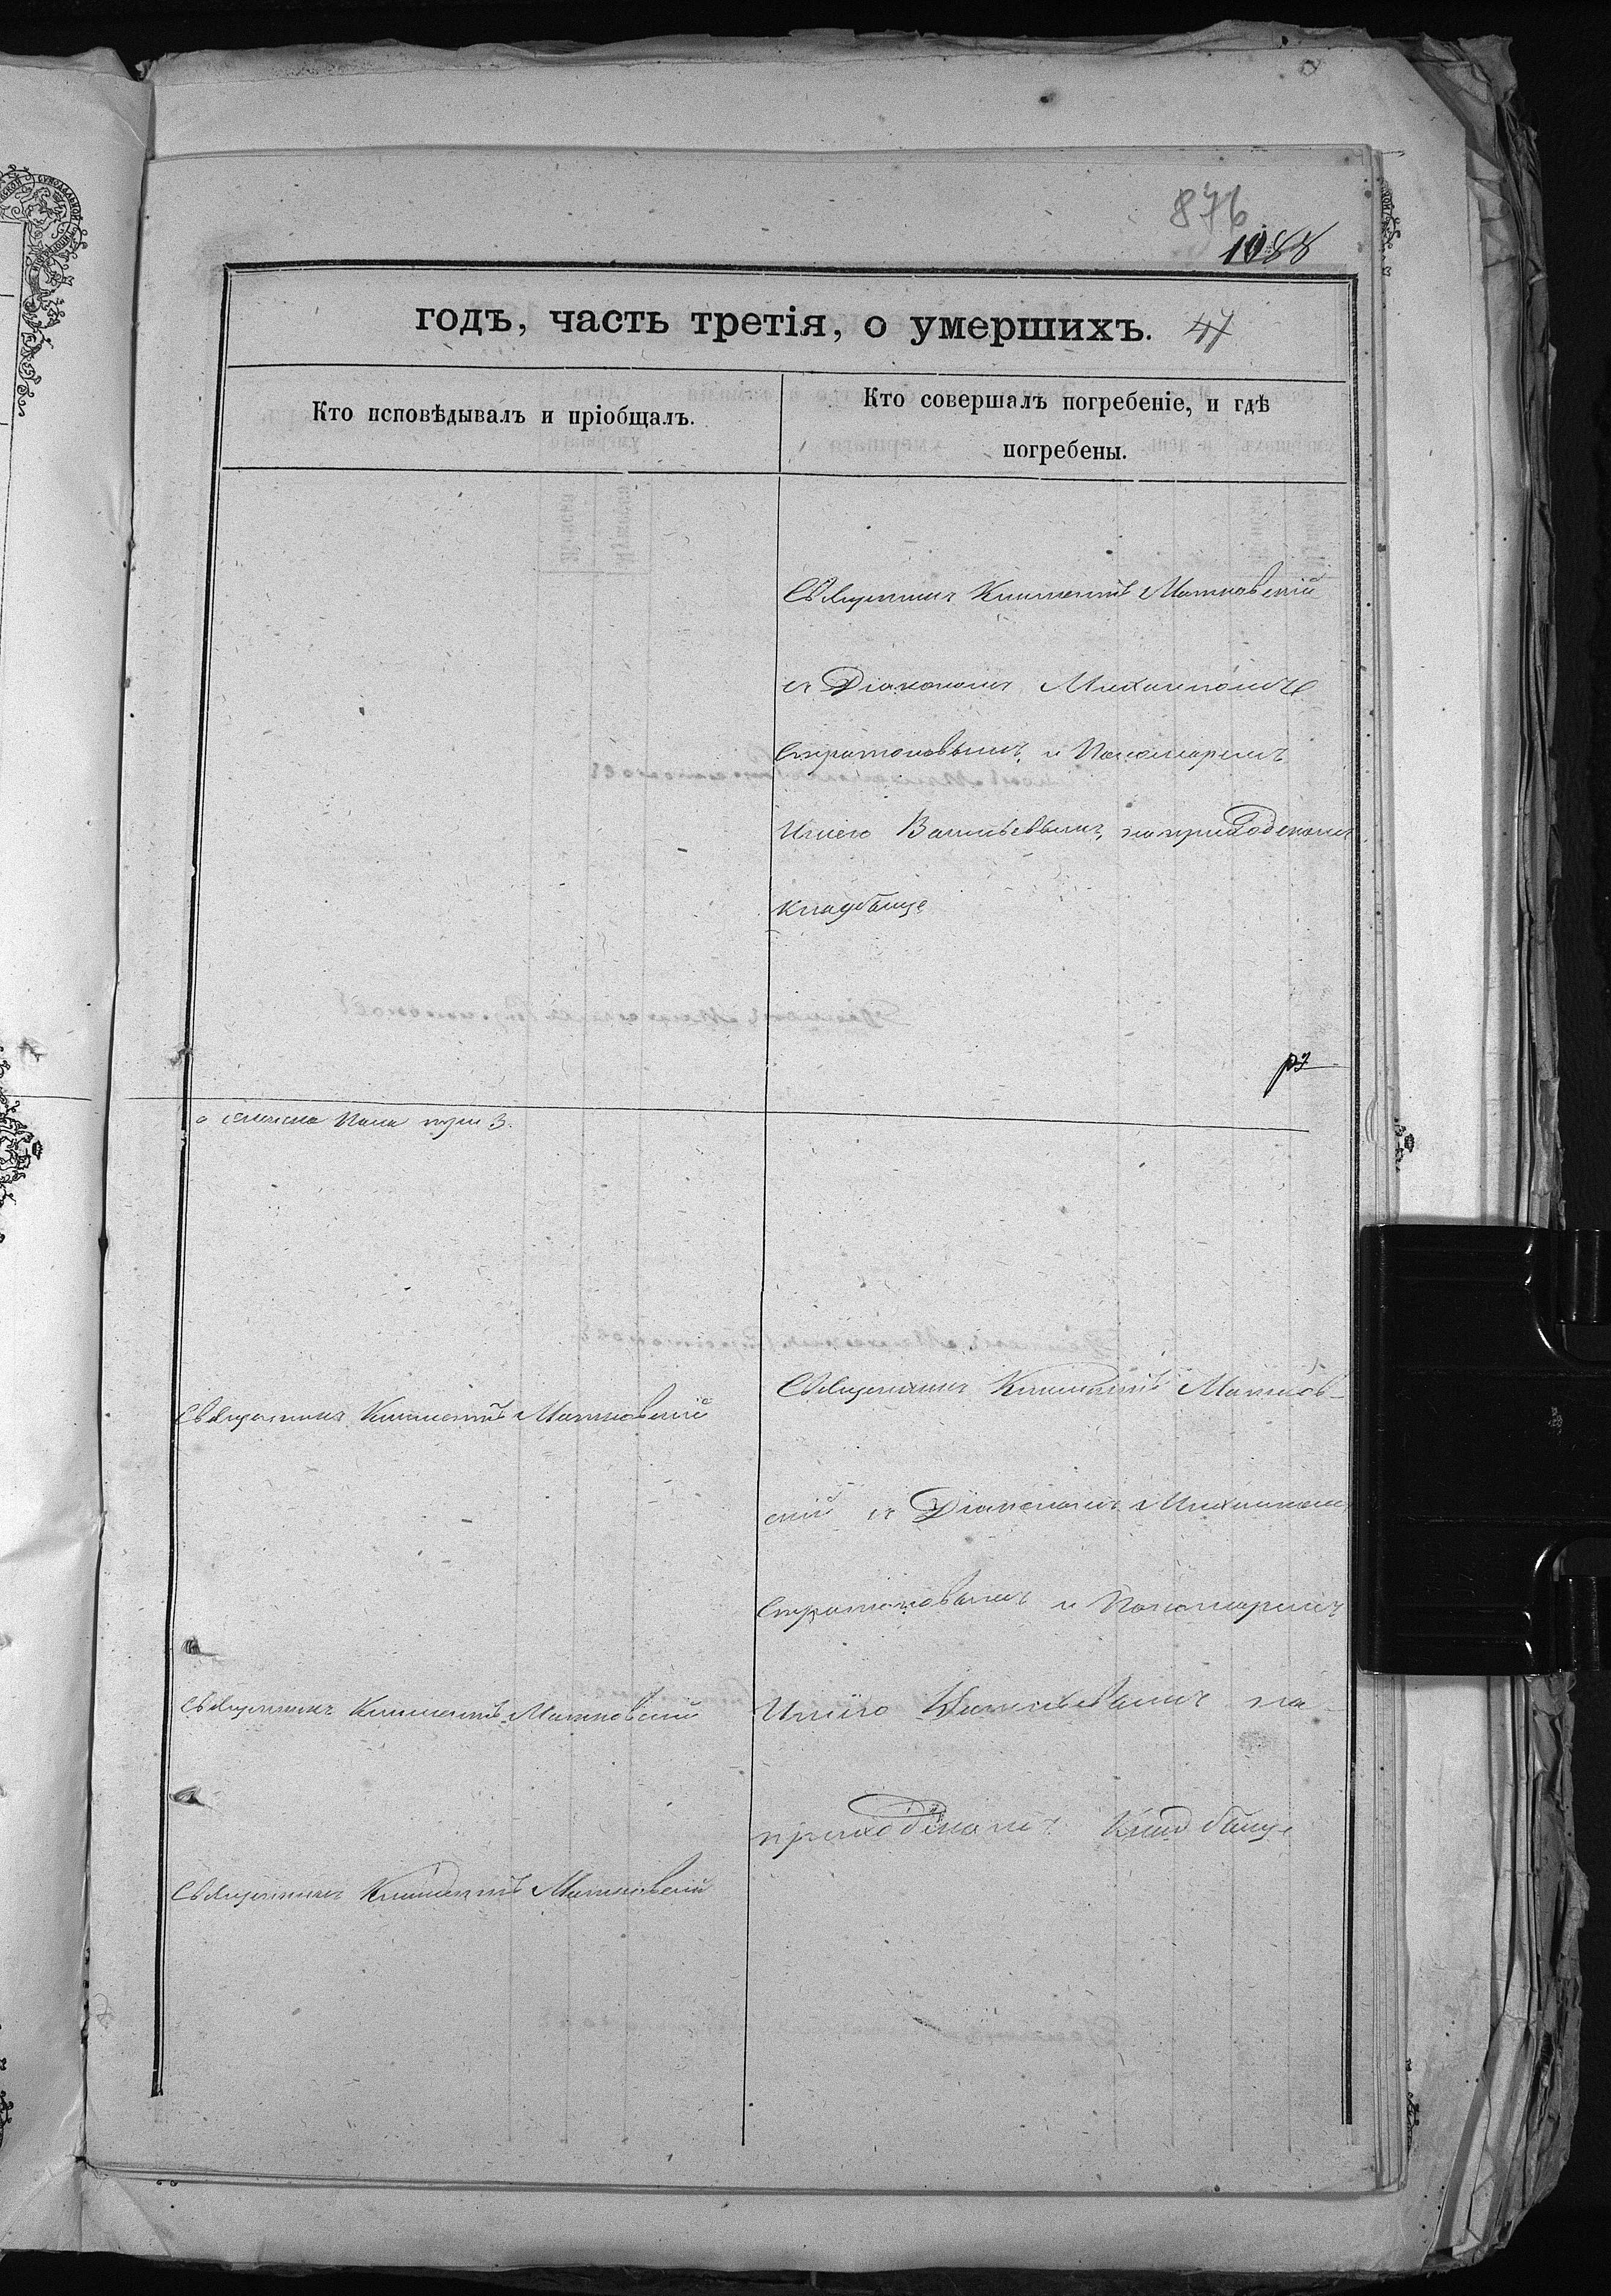 876
1088
годъ, часть третія, о умершихъ. 47
Кто исповѣдывалъ и пріобщалъ.
Кто совершалъ погребеніе, и гдѣ
погребены.
Священникъ Климентъ Матковскій
съ Діакономъ Михаиломъ
Стратоновымъ, и Пономаремъ
Иліею Васильевымъ, на приходскомъ
кладбищѣ
Священникъ Климентъ Матков-
скій съ Діакономъ Михаиломъ
Стратоновымъ и Пономаремъ
Иліею Васильевымъ на
приходскомъ Кладбищѣ
Священникъ Климентъ Матковскій
Священникъ Климентъ Матковскій
Священникъ Климентъ Матковскій